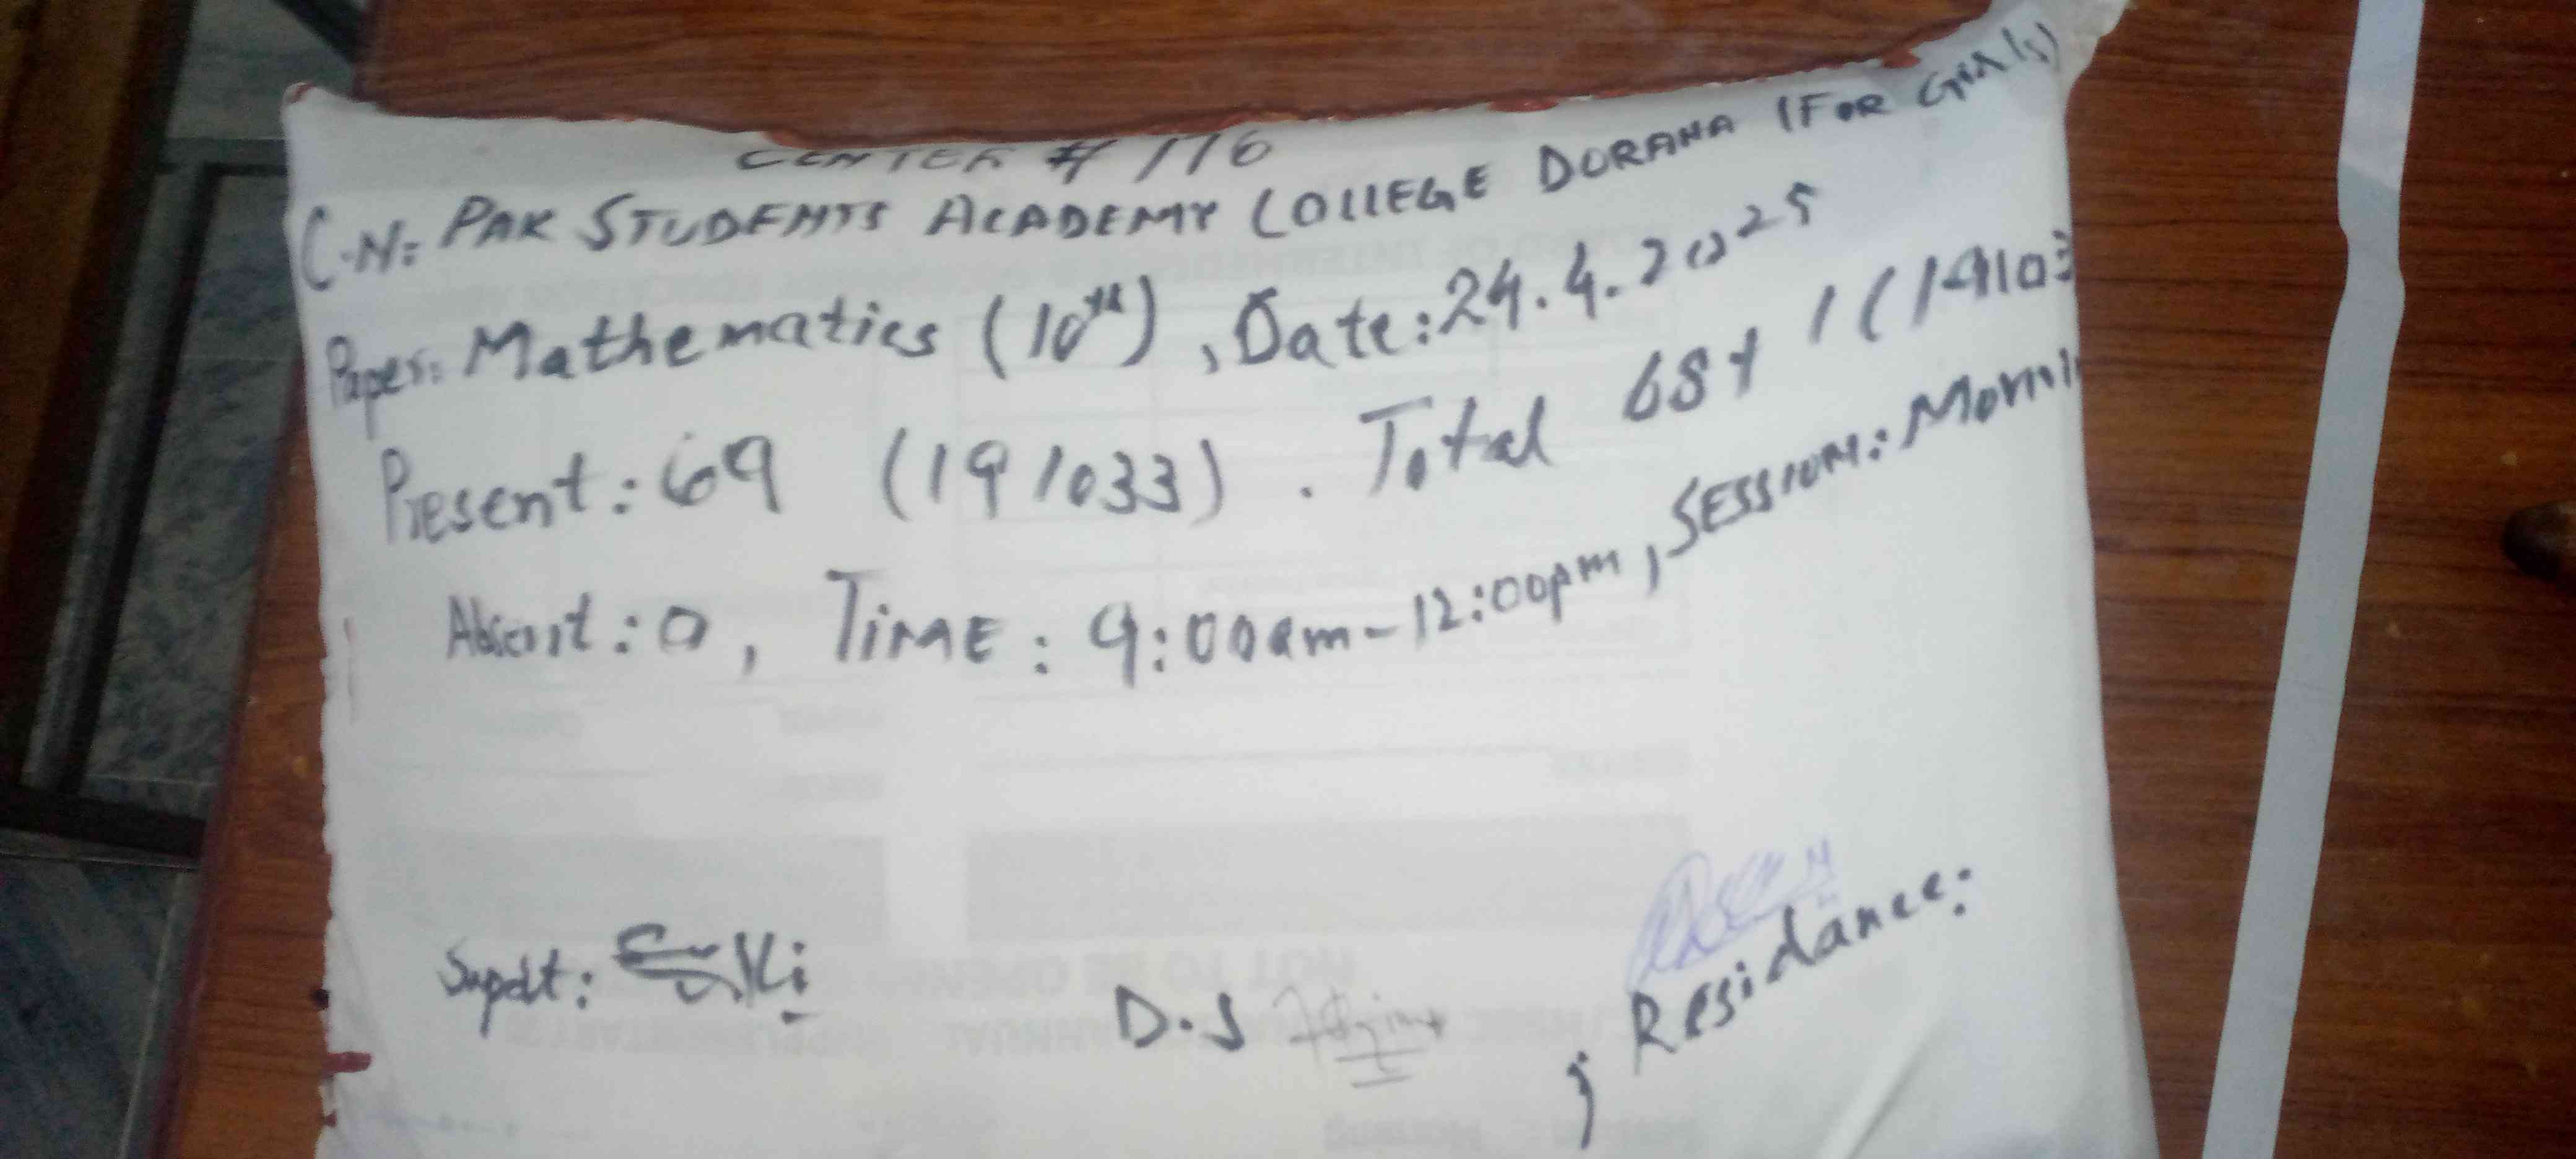 CENTER # 176
C.N: PAK STUDENTS ACADEMY COllEGE DORAHA (FOR Girls)
Paper: Mathematics (10th), Date: 24.4.2025
Present: 69 (191033). Total 68+1 (19103
Absent: 0, TIME: 9:00am-12:00pm, SESSION: Morni
Supdt:
D.S ; Residance:
NOT TO BE OPENED